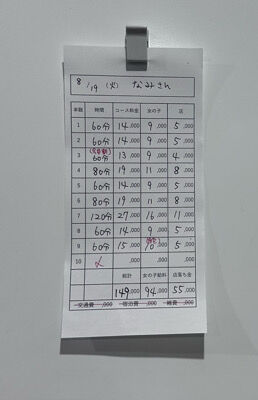 8/19 (火) なみさん
本数 時間 コース料金 女の子 店
1 60分 14,000 9,000 5,000
2 60分 14,000 9,000 5,000
3 60分 13,000 9,000 4,000
4 80分 19,000 11,000 8,000
5 60分 14,000 9,000 5,000
6 80分 19,000 11,000 8,000
7 120分 27,000 16,000 11,000
8 60分 14,000 9,000 5,000
9 60分 15,000 10,000 5,000
10 ,000 ,000 ,000
総計 女の子給料 店落ち金
149,000 94,000 55,000
交通費 ,000 宿泊費 ,000 雑費 ,000